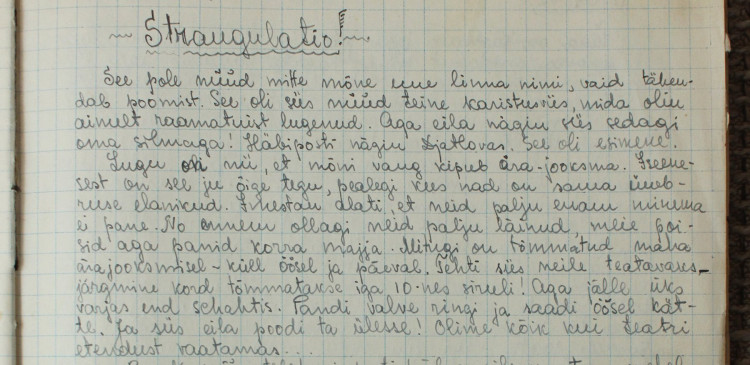 Strangulatio!
See pole nüüd mitte mõne uue linna nimi, vaid tähen-
dab poomist. See oli siis nüüd teine karistusviis, mida olin
ainult raamatuist lugenud. Aga eila nägin siis sedagi
oma silmaga! Häbiposti nägin Djatlovas. See oli esimene.
Lugu oli nii, et mõni vang kipub ära-jooksma. Iseene-
sest on see ju õige tegu, pealegi kus nad on sama ümb-
ruse elanikud. Imestan alati, et neid palju enam minema
ei pane. No ennem ollagi neid palju läinud, meie poi-
sid aga panid korra majja. Mitugi on tõmmatud maha
ärajooksmisel - küll öösel ja päeval. Tehti siis neile teatavaks
järgmine kord tõmmatakse iga 10-nes sirueli! Aga jälle üks
varjas end schahtis. Pandi valve ringi ja saadi öösel kät-
te. Ja siis eila poodi ta ülesse! Olime kõik kui teatri
etendust vaatamas...